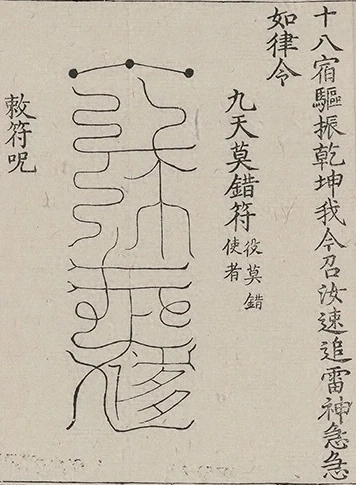 十八宿驅振乾坤我今召汝速追雷神急急
如律令
九天莫錯符
役莫錯
使者
敕符呪